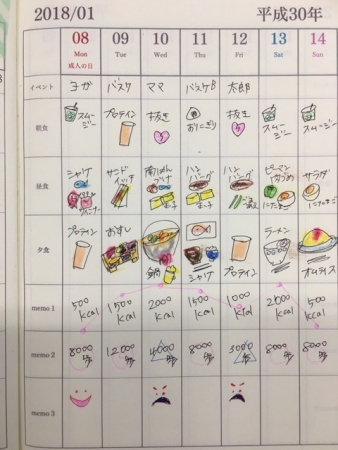 2018/01 平成30年
08 09 10 11 12 13 14
Mon Tue Wed Thu Fri Sat Sun
成人の日
イベント ヨガ バスケ ママ バスケB 太郎
朝食 スムージー プロテイン 抜き おにぎり 抜き スムージー スムージー
昼食 シャケ サンドイッチ 南ばんづけ ハンバーグ ハンバーグ ピーマン サラダ
夕食 プロテイン おすし 鍋 シャケ プロテイン ラーメン オムライス
memo 1 500kcal 1500kcal 2000kcal 1500kcal 1000kcal 2000kcal 500kcal
memo 2 8000歩 12000歩 4000歩 8000歩 3000歩 8000歩 8000歩
memo 3